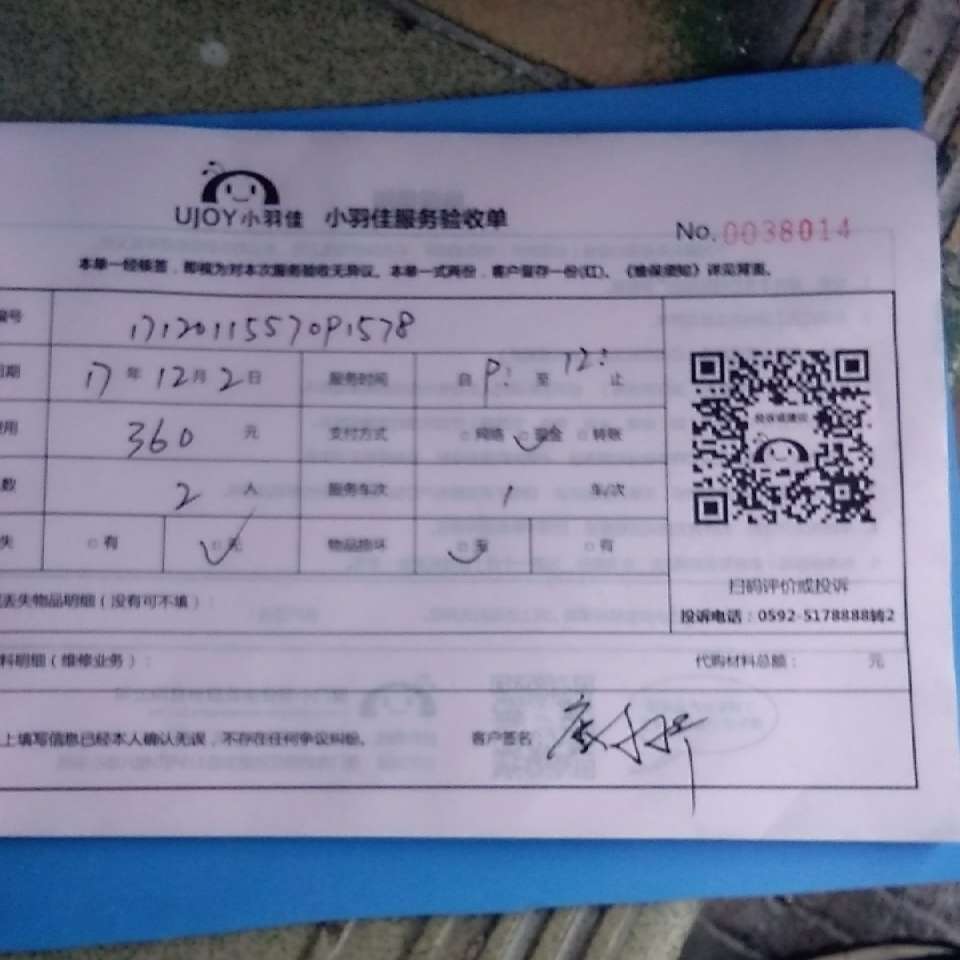 UJOY小羽佳 小羽佳服务验收单
No. 0038014
本单一经核签，即视为对本次服务验收无异议。本单一式两份，客户留存一份(红)。《维保须知》详见背面。
编号 1712011557091578
日期 17年12月2日 服务时间 自 9: 至 12: 止
费用 360 元 支付方式 □网络 □现金 □转账
数 2 人 服务车次 1 车/次
失 □有 □无 物品损坏 □无 □有
投诉或建议
扫码评价或投诉
丢失物品明细（没有可不填）：
投诉电话：0592-5178888转2
料明细（维修业务）： 代购材料总额： 元
上填写信息已经本人确认无误，不存在任何争议纠纷。 客户签名